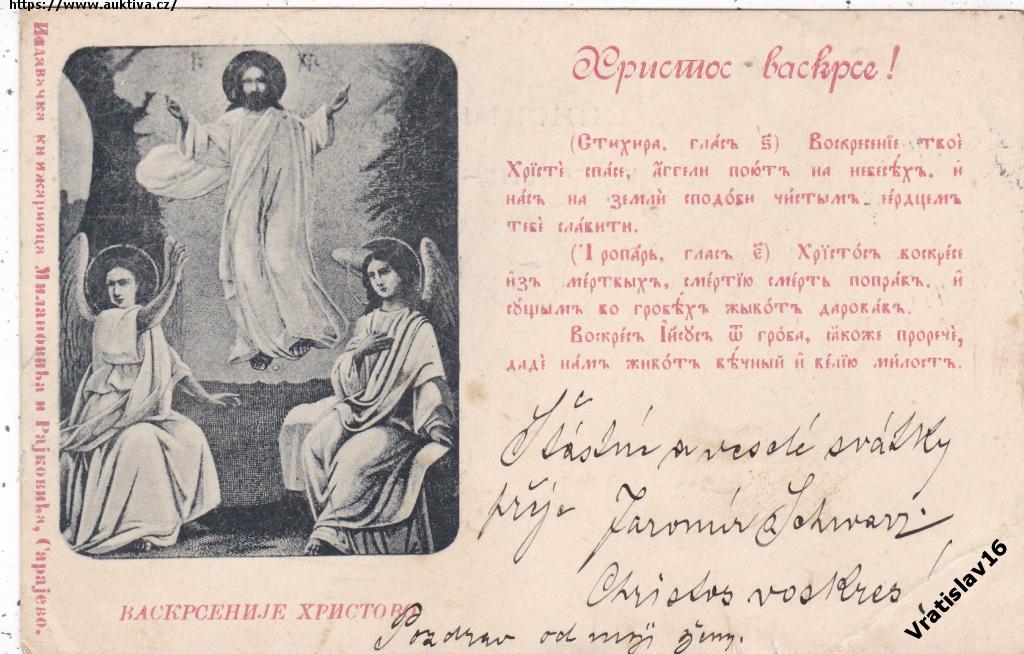 https://www.auktiva.cz/
Издавачка књижарница Милановића и Рајковића, Сарајево.
Христос васкрсе!
(Стихира, гла́съ ѕ҃) Воскресе́нїе твоѐ
Хрїстѐ спа́се, а҆́ггели пою́тъ на небесѣ́хъ, и҆
на́съ на землѝ сподо́би чи́стымъ се́рдцемъ
тебѐ сла́вити.
(Тропа́рь, гласъ є҃) Хрїсто́съ воскре́се
и҆зъ ме́ртвыхъ, сме́ртїю сме́рть попра́въ, и҆
су́щымъ во гробѣ́хъ жыво́тъ дарова́въ.
Воскре́съ І҆и҃сусъ ѿ гро́ба, ꙗ҆́коже проречѐ,
дадѐ на́мъ живо́тъ вѣ́чный и҆ ве́лїю ми́лость.
Štástní a veselé svátky
přije Jaromír Schwarz.
Christos voskres!
ВАСКРСЕНИЈЕ ХРИСТОВО
Pozdrav od mojí ženy.
Vratislav16